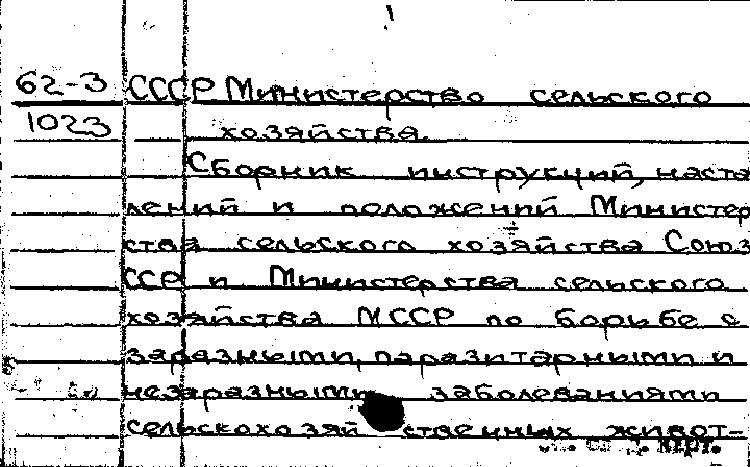 62-3 СССР Министерство сельского
1023 хозяйства.
Сборник инструкций, настав
лений и положений Министер
ства сельского хозяйства Союза
ССР и Министерства сельского
хозяйства МССР по борьбе с
заразными, паразитарными и
незаразными заболеваниями
сельскохозяйственных живот-